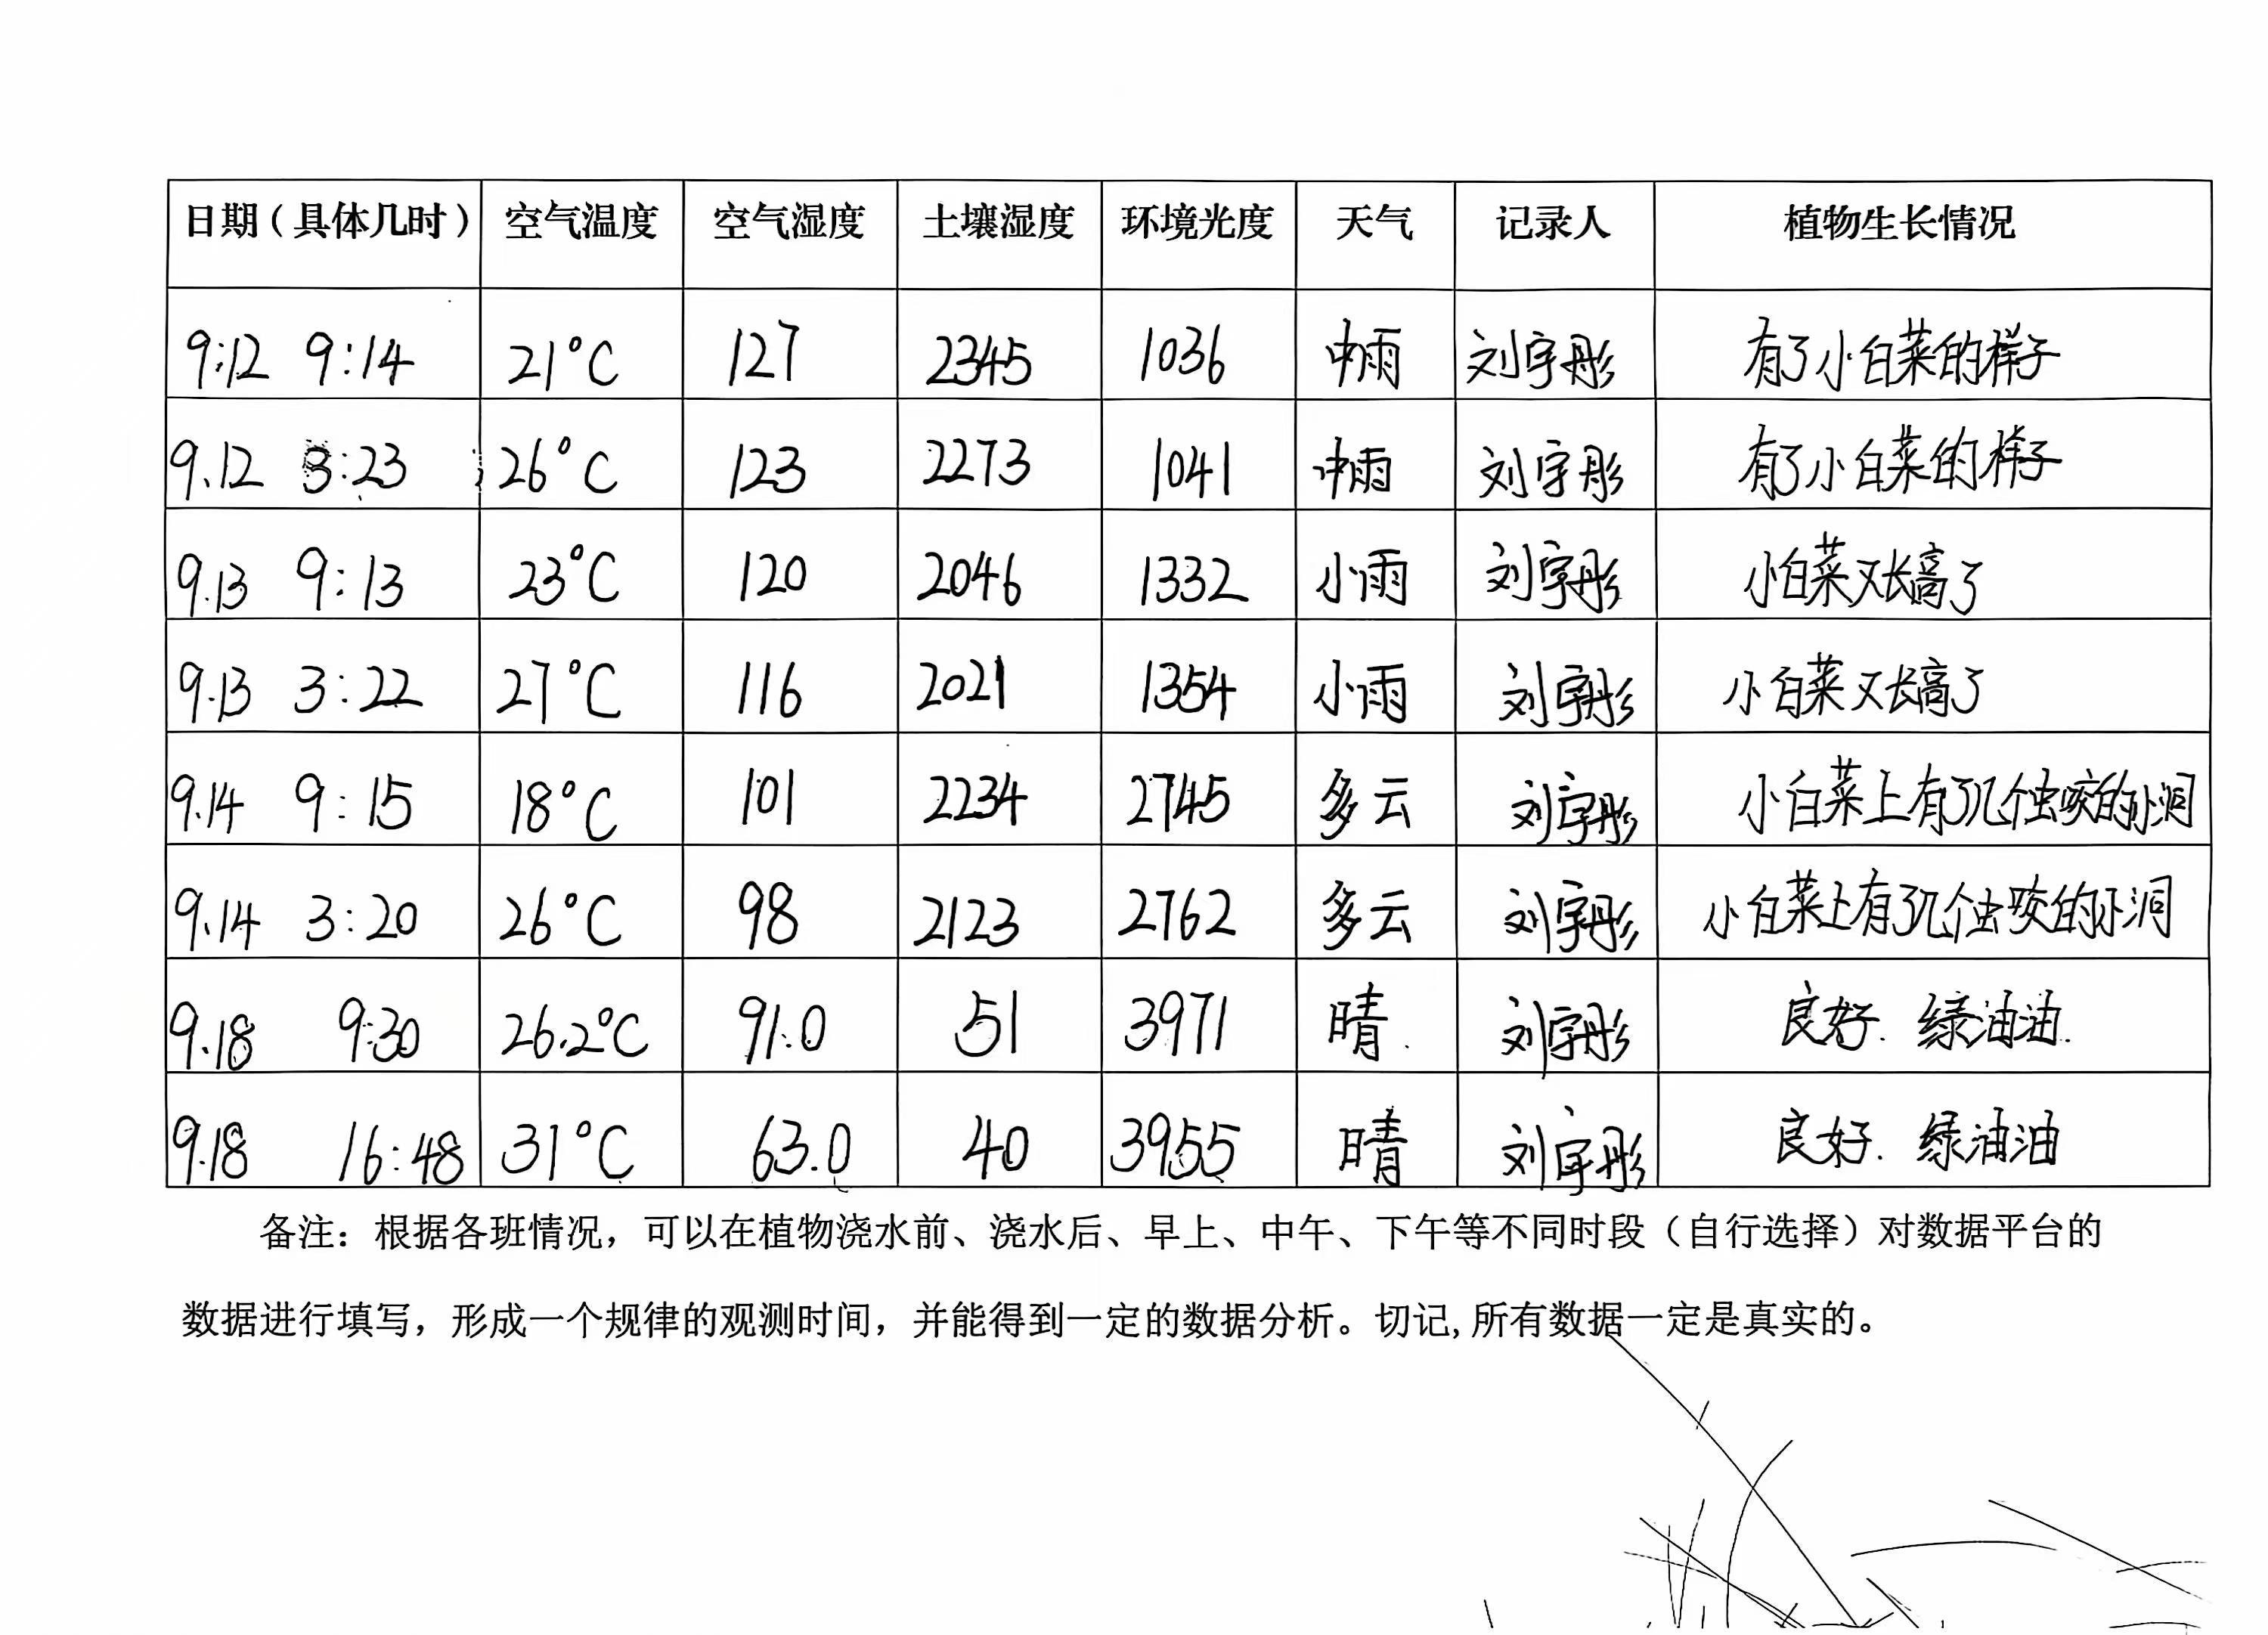 日期（具体几时） 空气温度 空气湿度 土壤湿度 环境光度 天气 记录人 植物生长情况
9:12 9:14 21°C 127 2345 1036 中雨 刘宇彤 有了小白菜的样子
9.12 3:23 26°C 123 2273 1041 中雨 刘宇彤 有了小白菜的样子
9.13 9:13 23°C 120 2046 1332 小雨 刘宇彤 小白菜又长高了
9.13 3:22 27°C 116 2021 1354 小雨 刘宇彤 小白菜又长高了
9.14 9:15 18°C 101 2234 2745 多云 刘宇彤 小白菜上有了几个虫咬的小洞
9.14 3:20 26°C 98 2123 2762 多云 刘宇彤 小白菜上有了几个虫咬的小洞
9.18 9:30 26.2°C 91.0 51 3971 晴. 刘宇彤 良好. 绿油油.
9.18 16:48 31°C 63.0 40 3955 晴 刘宇彤 良好. 绿油油
备注：根据各班情况，可以在植物浇水前、浇水后、早上、中午、下午等不同时段（自行选择）对数据平台的
数据进行填写，形成一个规律的观测时间，并能得到一定的数据分析。切记,所有数据一定是真实的。